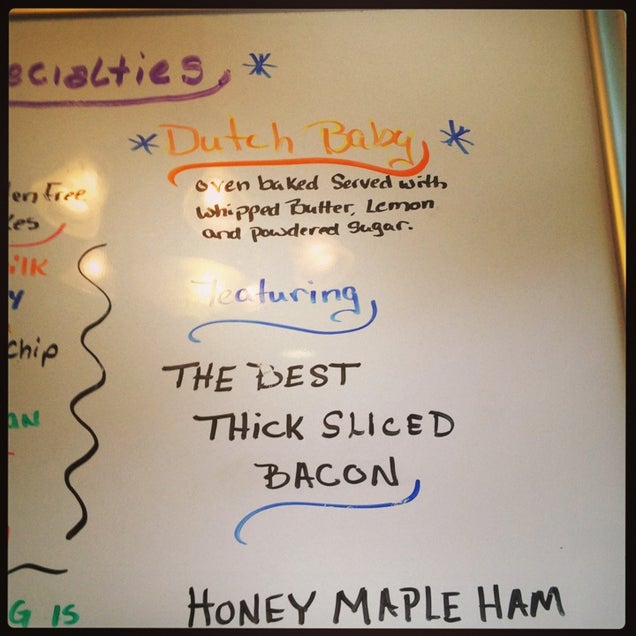 ecialties
* Dutch Baby *
oven baked Served with
whipped Butter, Lemon
and powdered Sugar.
Featuring
THE BEST
THICK SLICED
BACON
HONEY MAPLE HAM
en Free
kes
ilk
y
chip
AN
G IS